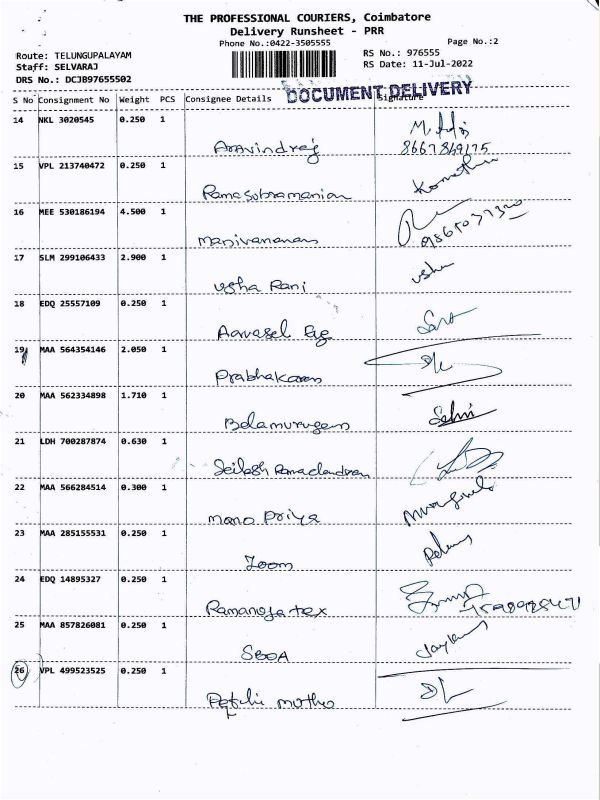 THE PROFESSIONAL COURIERS, Coimbatore
Delivery Runsheet - PRR
Phone No.:0422-3505555
Page No.:2
Route: TELUNGUPALAYAM
RS No.: 976555
Staff: SELVARAJ
RS Date: 11-Jul-2022
DRS No.: DCJB97655502
DOCUMENT DELIVERY
S No Consignment No Weight PCS Consignee Details Signature
14 NKL 3020545 0.250 1
Aravindraj 8667869175
15 VPL 213740472 0.250 1
Ramasubramanian
16 MEE 530186194 4.500 1
Manivannan
17 SLM 299106433 2.900 1
Usha Rani usha
18 EDQ 25557109 0.250 1
19 MAA 564354146 2.050 1
Prabhakaran
20 MAA 562334898 1.710 1
Balamurugan Selvi
21 LDH 700287874 0.630 1
Ramachandran
22 MAA 566284514 0.300 1
mano Priya
23 MAA 285155531 0.250 1
Zoom
24 EDQ 14895327 0.250 1
Ramanuja tex
25 MAA 857826081 0.250 1
SBOA
26 VPL 499523525 0.250 1
muthu